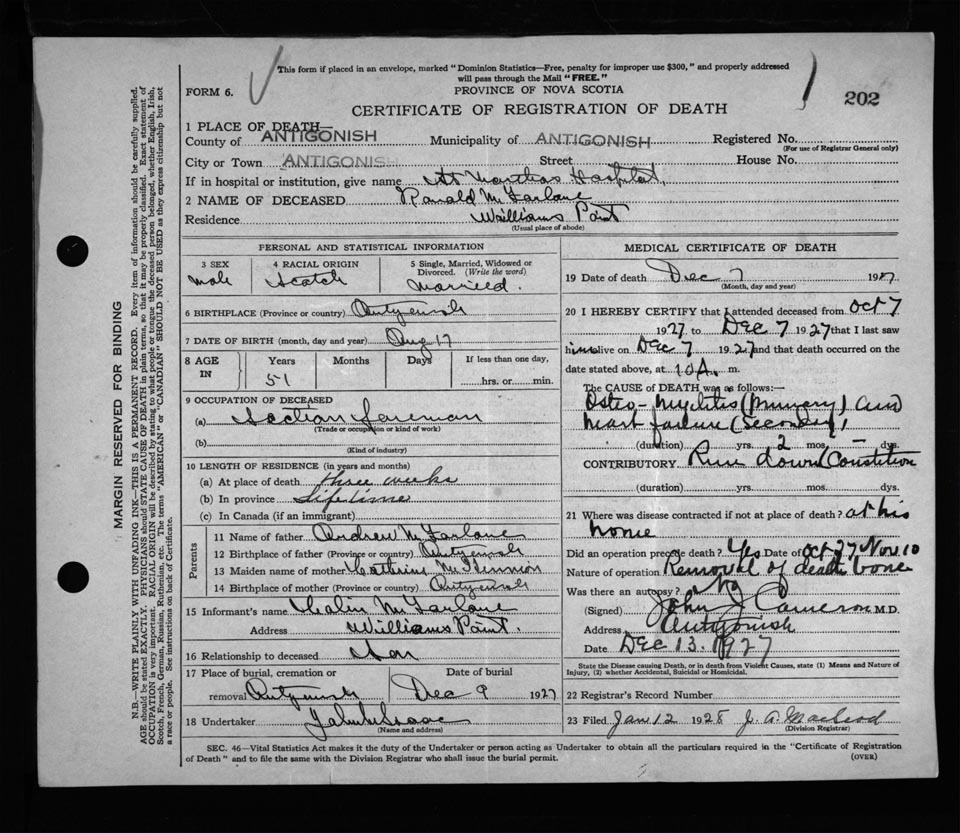 This form if placed in an envelope, marked "Dominion Statistics—Free, penalty for improper use $300," and properly addressed
will pass through the Mail "FREE."
FORM 6.
PROVINCE OF NOVA SCOTIA
202
CERTIFICATE OF REGISTRATION OF DEATH
1 PLACE OF DEATH—
County of ANTIGONISH Municipality of ANTIGONISH Registered No.
(For use of Registrar General only)
City or Town ANTIGONISH Street House No.
If in hospital or institution, give name St Marthas Hospital,
2 NAME OF DECEASED Ranald McFarlane
Residence Williams Point
(Usual place of abode)
PERSONAL AND STATISTICAL INFORMATION
3 SEX
male
4 RACIAL ORIGIN
Scotch
5 Single, Married, Widowed or
Divorced. (Write the word)
Married.
6 BIRTHPLACE (Province or country) Antigonish
7 DATE OF BIRTH (month, day and year) Aug 17
8 AGE
IN
Years
51
Months
Days
If less than one day,
hrs. or min.
9 OCCUPATION OF DECEASED
(a) Section foreman
(Trade or occupation or kind of work)
(b)
(Kind of industry)
10 LENGTH OF RESIDENCE (in years and months)
(a) At place of death three weeks
(b) In province Lifetime
(c) In Canada (if an immigrant)
Parents
11 Name of father Andrew McFarlane
12 Birthplace of father (Province or country) Antigonish
13 Maiden name of mother Catherine McKinnon
14 Birthplace of mother (Province or country) Antigonish
15 Informant's name Colin McFarlane
Address Williams Point.
16 Relationship to deceased Son
17 Place of burial, cremation or
removal Antigonish
Date of burial
Dec 9 1927
18 Undertaker
(Name and address)
MEDICAL CERTIFICATE OF DEATH
19 Date of death Dec 7 1927
(Month, day and year)
20 I HEREBY CERTIFY that I attended deceased from Oct 7
1927 to Dec 7 1927 that I last saw
him alive on Dec 7 1927 and that death occurred on the
date stated above, at 10 A. m.
The CAUSE OF DEATH was as follows:—
Osteo-Myelitis (Primary) and
heart failure (Secondary)
(duration) yrs. 2 mos. — dys.
CONTRIBUTORY Run down Constitution
(duration) yrs. mos. dys.
21 Where was disease contracted if not at place of death? at his
home
Did an operation precede death? Yes Date of Oct 27 Nov. 10
Nature of operation Removal of death bone
Was there an autopsy? No
(Signed) John J Cameron M.D.
Address Antigonish
Date Dec 13. 1927
State the Disease causing Death, or in death from Violent Causes, state (1) Means and Nature of
Injury, (2) whether Accidental, Suicidal or Homicidal.
22 Registrar's Record Number
23 Filed Jan 12 1928 J. A. Macleod
(Division Registrar)
SEC. 46—Vital Statistics Act makes it the duty of the Undertaker or person acting as Undertaker to obtain all the particulars required in the "Certificate of Registration
of Death" and to file the same with the Division Registrar who shall issue the burial permit.
(OVER)
MARGIN RESERVED FOR BINDING
N.B.—WRITE PLAINLY WITH UNFADING INK—THIS IS A PERMANENT RECORD. Every item of information should be carefully supplied.
AGE should be stated EXACTLY. PHYSICIANS should STATE CAUSE OF DEATH in plain terms, so that it may be properly classified. Exact statement of
OCCUPATION is very important. RACIAL ORIGIN will be described by stating to what people or tongue the deceased person belonged, whether English, Irish,
Scotch, French, German, Russian, Ruthenian, etc. The terms "AMERICAN" or "CANADIAN" SHOULD NOT BE USED as they express citizenship but not
a race or people. See instructions on back of Certificate.